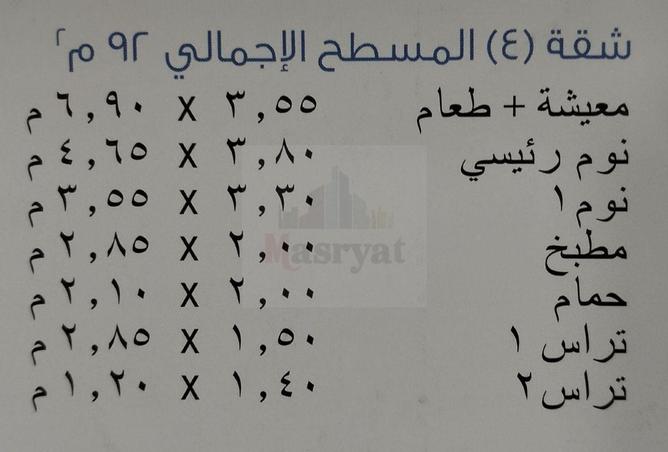 شقة (٤) المسطح الإجمالي ٩٢ م٢
معيشة + طعام ٣,٥٥ X ٦,٩٠ م
نوم رئيسي ٣,٨٠ X ٤,٦٥ م
نوم ١ ٣,٣٠ X ٣,٥٥ م
مطبخ ٢,٠٠ X ٢,٨٥ م
حمام ٢,٠٠ X ٢,١٠ م
تراس ١ ١,٥٠ X ٢,٨٥ م
تراس ٢ ١,٤٠ X ١,٢٠ م
Masryat